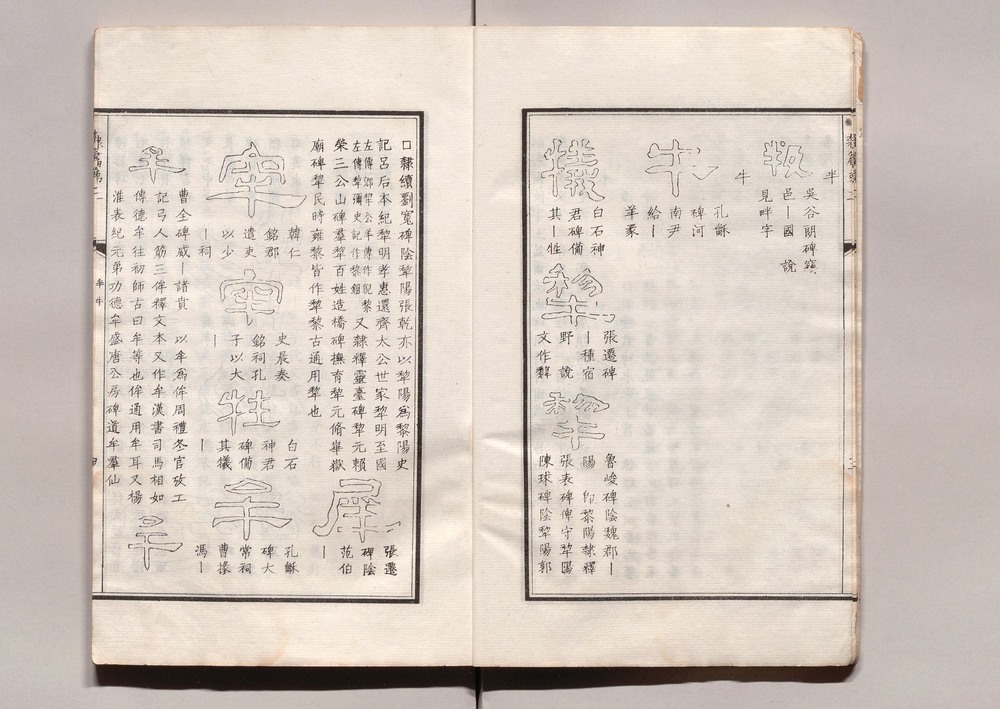 隸篇弟二
半
叛
吳谷朗碑寶
邑丨國 說
見畔字
牛
牛
孔龢
碑河
南尹
給丨
羊豢
犧
白石神
君碑備
其丨牲
犂
張遷碑
丨種宿
野 說
文作
犂
魯峻碑陰魏郡丨
陽 卽黎陽隸釋
張表碑俾守犂陽
陳球碑陰犂陽郭
囗隸續劉寬碑陰犂陽張乾亦以犂陽爲黎陽史
記呂后本紀犂明孝惠還齊太公世家犂明至國
左傳鄎犂公羊傳作倪黎
左傳犂彌史記作黎鉏
又隸釋靈臺碑犂元賴
榮三公山碑羣犂百姓造橋碑撫育犂元脩華嶽
廟碑犂民時雍黎皆作犂黎古通用犂也
犀
張遷
碑陰
范伯
丨
牢
韓仁
銘郡
遣吏
以少
丨祠
牢
史晨奏
銘祠孔
子以大
丨
牲
白石
神君
碑備
其犧
丨
牟
孔龢
碑大
常祠
曹掾
馮丨
牟
曹全碑威丨諸賁 以牟爲侔周禮冬官攷工
記弓人筋三侔釋文本又作牟漢書司馬相如
傳德牟往初師古曰牟等也侔通用牟耳又楊
淮表紀元弟功德牟盛唐公房碑道牟羣仙
牟
隸篇弟二
半牛
四